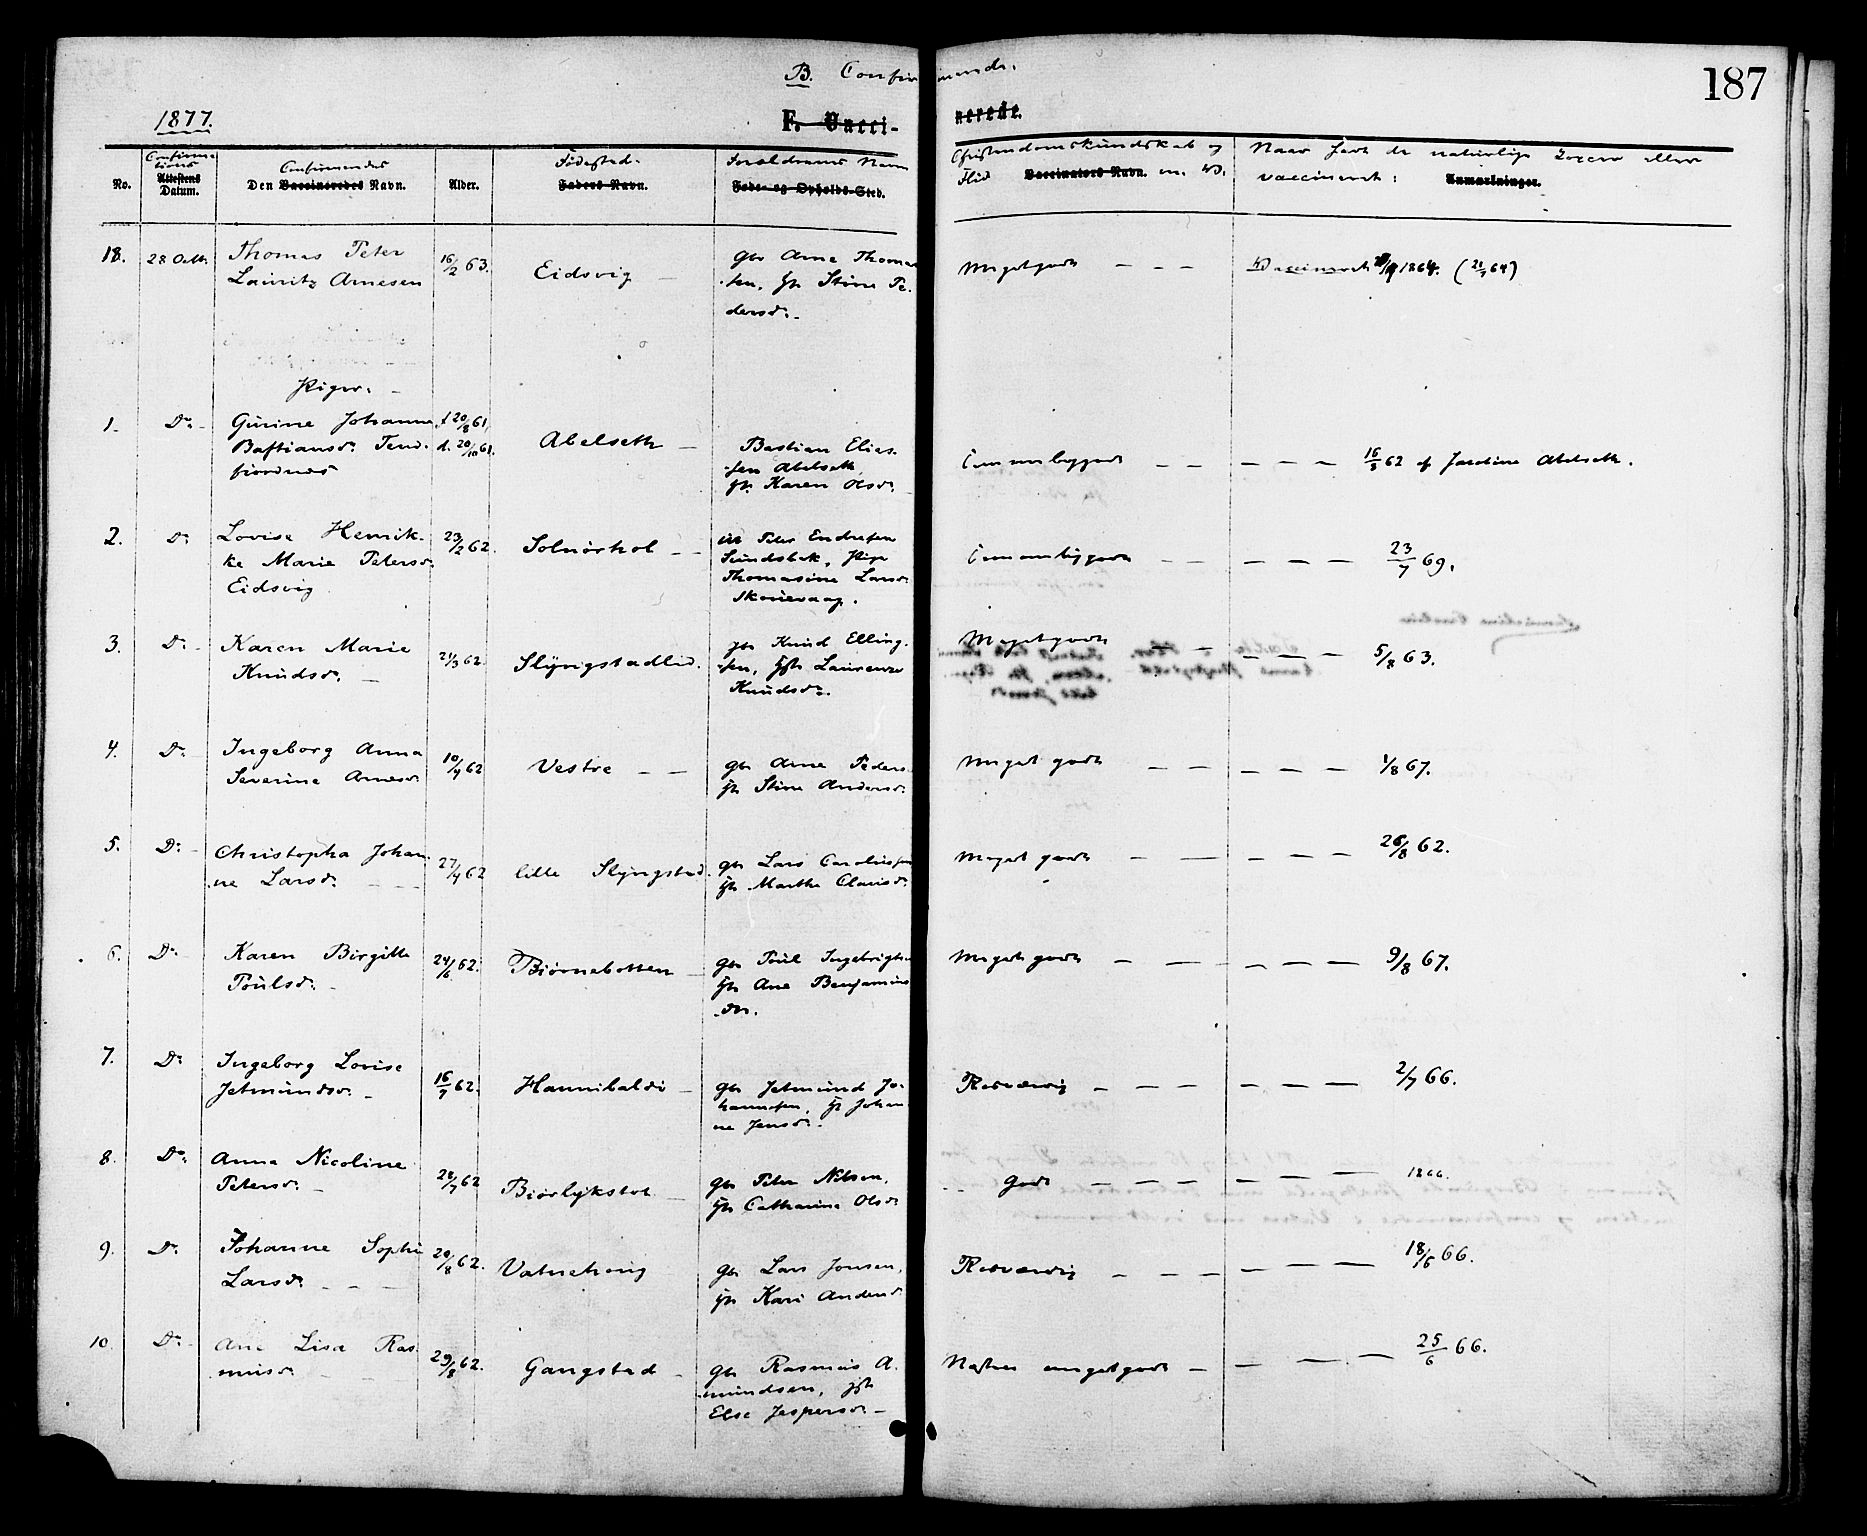 187
B. Confirmerede.
1877.
F. Vaccinerede.
No.
Confirmationens Attestens Datum.
Confirmandens
Den Vaccineredes Navn.
Alder.
Fødested.
Faders Navn.
Forældrenes Navn
Føde- og Opholds-Sted.
Christendomskundskab og
Flid Vaccinators Navn. m. v.
Naar havt de naturlige Kopper eller
vaccineret: Anmærkninger.
18. 28 Octb. Thomas Peter
Lauritz Arnesen
16/2 63. Eidsvig
Gbr Arne Thomas
sen, Hu Stine Pe-
dersd.
Megetgodt — — — Vaccineret 1864. (21/7 64)
Piger.
1. Do Gurine Johanne
Bastiansd. Tend-
fiordnes
f 20/8 61,
d. 20/10 61.
Abelseth —
Bastian Elias-
sen Abelseth,
Karen Olsd.
Temmeliggodt — — — — — 16/8 62 af Jacobine Abelseth.
2. Do Lovise Henrik-
ke Marie Petersd.
Eidsvig
23/2 62. Solnørhol — —
Peter Endresen
Sundsbak, Pige
Thomasine Larsd.
Skorevaag.
Temmeliggodt — — — — — 23/7 69.
3. Do Karen Marie
Knudsd. —
21/3 62. Slyngstadlid.
Knud Elling-
sen, Laurense
Knudsd.
Megetgodt — — — — — 5/8 63.
4. Do Ingeborg Anna
Severine Arnesd.
10/4 62 Vestre — —
Gbr Arne Peders.
Hu Stine Andersd.
Meget godt — — — — — 1/8 67.
5. Do Christopha Johan-
ne Larsd. — —
27/4 62 lille Slyngstad.
Gbr Lars Carolius
Hu Marthe Clausd.
Meget godt — — — — — 26/8 62.
6. Do Karen Birgitte
Poulsd. —
24/6 62. Biørnebotten —
Gbr Poul Ingebrigts
Hu Ane Benjamins
dr.
Meget godt — — — — — 9/8 67.
7. Do Ingeborg Lovise
Jetmundsd. —
16/7 62. Hannibaldi —
Gbr Jetmund Jo-
hannesen, Hu Johan
ne Jensd.
Roesværdig — — — — — 2/7 66.
8. Do Anna Nicoline
Petersd. —
28/7 62 Biørlykstol —
Gbr Peter Nilsen,
Hu Catharina Olsd.
Godt — — — — — 1866.
9. Do Johanne Sophi
Larsd. — — —
20/8 62. Vatnehoug
Gbr Lars Jonsen,
Hu Kari Andersd.
Roesværdig — — — — — 18/6 66.
10. Do Ane Lisa Ras-
musd. — —
29/8 62. Gangstad —
Gbr Rasmus A-
mundsen,
Else Jespersd. —
Næsten megetgodt — — — — 25/6 66.